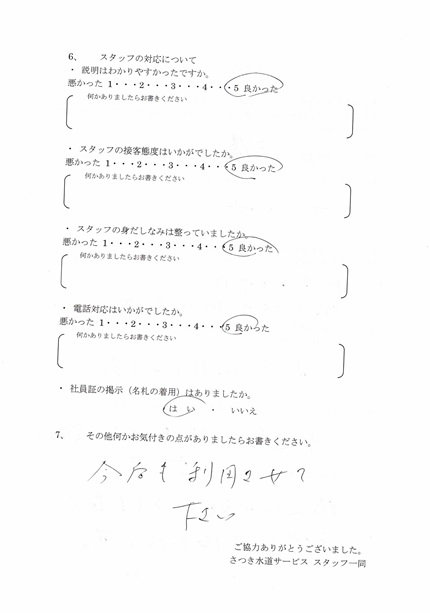 6、 スタッフの対応について
・ 説明はわかりやすかったですか。
悪かった 1・・・2・・・3・・・4・・・5 良かった
何かありましたらお書きください
・ スタッフの接客態度はいかがでしたか。
悪かった 1・・・2・・・3・・・4・・・5 良かった
何かありましたらお書きください
・ スタッフの身だしなみは整っていましたか。
悪かった 1・・・2・・・3・・・4・・・5 良かった
何かありましたらお書きください
・ 電話対応はいかがでしたか。
悪かった 1・・・2・・・3・・・4・・・5 良かった
何かありましたらお書きください
・ 社員証の掲示（名札の着用）はありましたか。
はい ・ いいえ
7、 その他何かお気付きの点がありましたらお書きください。
今后も利用させて
下さい
ご協力ありがとうございました。
さつき水道サービス スタッフ一同